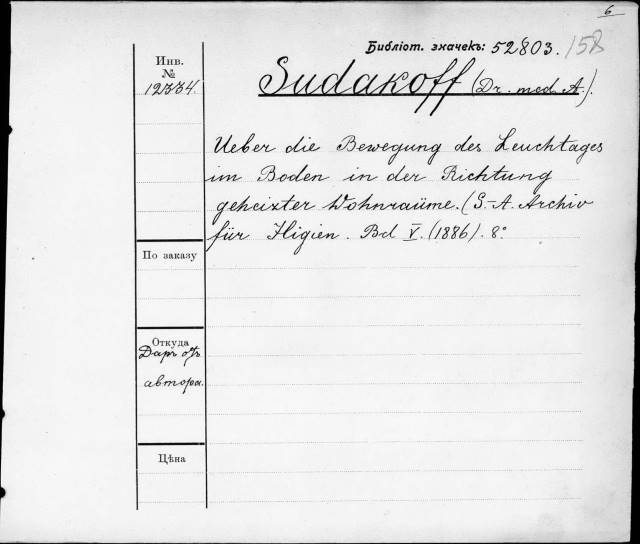 6
Библіот. значекъ: 52803. 158
Инв.
№
12334.
Sudakoff (Dr. med. A.).
Ueber die Bewegung des Leuchtages
im Boden in der Richtung
geheizter Wohnraüme. (S.-A. Archiv
für Higien. Bd V. (1886). 8°
По заказу
Откуда
Даръ отъ
автора.
Цѣна